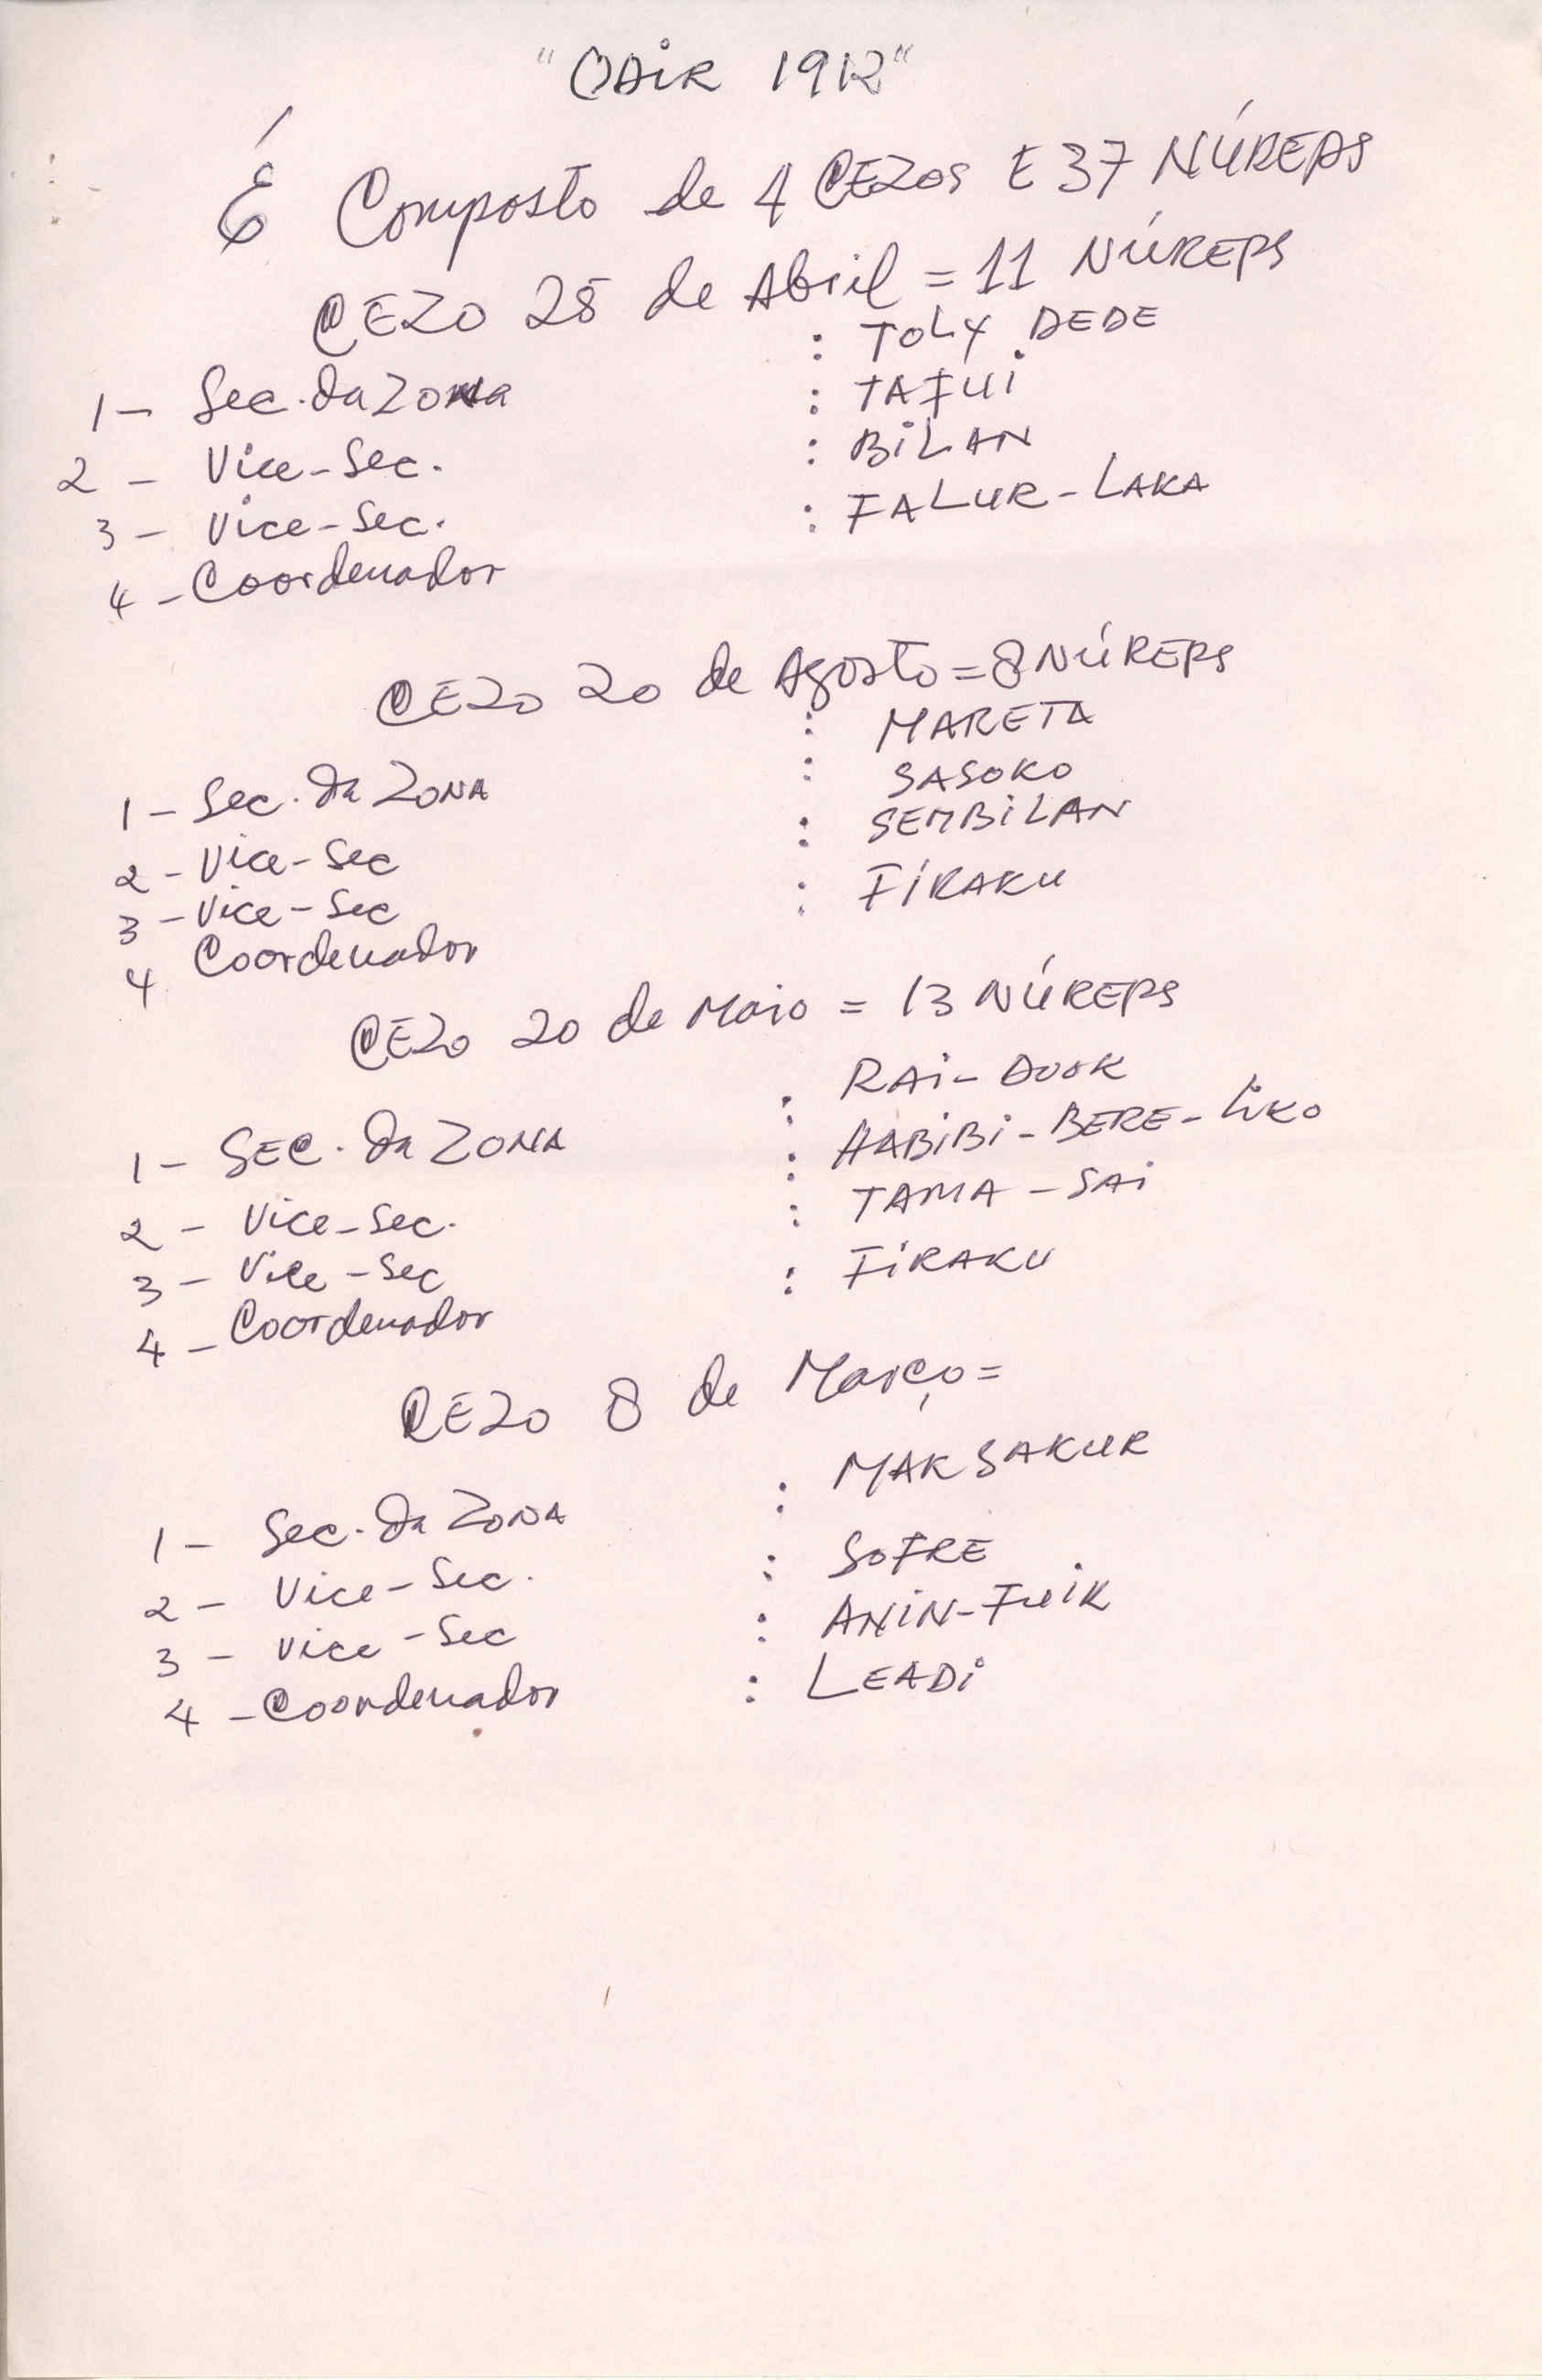 "ODIR 1912"
É Composto de 4 CEZOS E 37 NÚREPS
CEZO 25 de Abril = 11 NÚREPS
1 - Sec. da Zona : TOLY DEDE
2 - Vice-Sec. : TAFUI
3 - Vice-Sec. : BILAN
4 - Coordenador : FALUR-LAKA
CEZO 20 de Agosto = 8 NÚREPS
1 - Sec. da ZONA : MARETA
2 - Vice-Sec : SASOKO
3 - Vice-Sec : SEMBILAN
4 Coordenador : FIRAKU
CEZO 20 de Maio = 13 NÚREPS
1 - SEC. da ZONA : RAI-DOOK
2 - Vice-Sec. : HABIBI-BERE-LIKO
3 - Vice-Sec : TAMA-SAI
4 - Coordenador : FIRAKU
CEZO 8 de Março =
1 - Sec. da ZONA : MAKSAKUR
2 - Vice-Sec. : SOFRE
3 - Vice-Sec : ANIN-FUIK
4 - Coordenador : LEADI